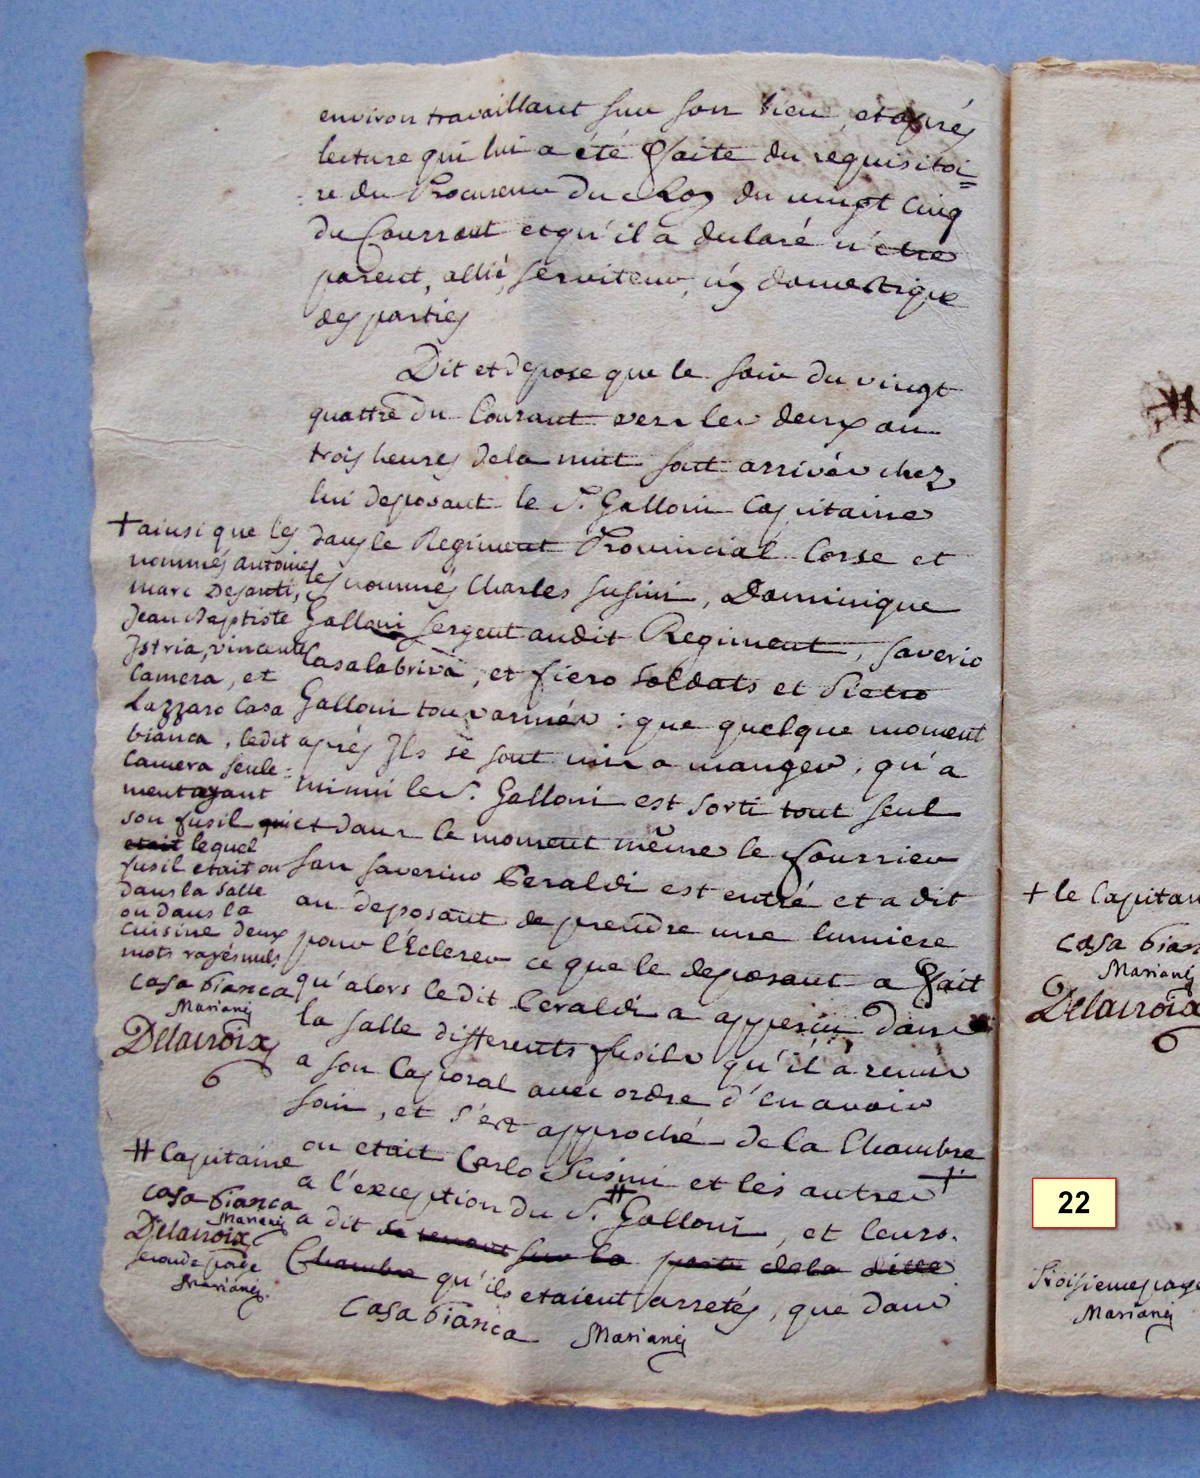 environ travaillant sur son bien, et aprés
lecture qui lui a été faite du requisitoi=
re du Procureur du Roy du vingt cinq
du Courrant et qu'il a declaré n'etre
parent, allié, serviteur, ny domestique
des parties
Dit et depose que le soir du vingt
quattre du Courant vers les deux ou
trois heures de la nuit sont arrivés chez
lui deposant le S.r Galloni Capitaine
dans le Regiment Provincial Corse et
les nommés Charles Susini, Dominique
Galloni sergent audit Regiment, Saverio
Casalabriva, et fiero soldats et Pietro
Galloni tous armés : que quelque moment
aprés Ils se sont mis a manger, qu'a
minui le S.r Galloni est sorti tout seul
et dans le moment même le fourrier
son Saverino Peraldi est entré et a dit
au deposant de prendre une lumiere
pour l'Eclerer ce que le deposant a fait
qu'alors ledit Peraldi a apperçu dans
la salle differents fusils qu'il a remis
a son Caporal avec ordre d'en avoir
soin, et s'est approché de la Chambre
ou etait Carlo Susini et les autres +
a l'exception du S.r # Galloni, et leurs
a dit se tenant sur la porte de la ditte
Chambre qu'ils etaient arretés, que dans
Casabianca Marianj
+ ainsi que les
nommés antoine
marc Desanti,
Jean Baptiste
Istria, vincent
Camera, et
Lazzaro Casa
bianca, ledit
Camera seule-
ment ayant
son fusil qui
etait lequel
fusil etait ou
dans la salle
ou dans la
cuisine deux
mots rayés nuls
Casabianca
Marianj
Delacroix
# Capitaine
Casabianca
Marianj
Delacroix
seconde page
Marianj
+ le Capitan
Casa bian
Marianj
Delacroix
22
troisieme page
Marianj